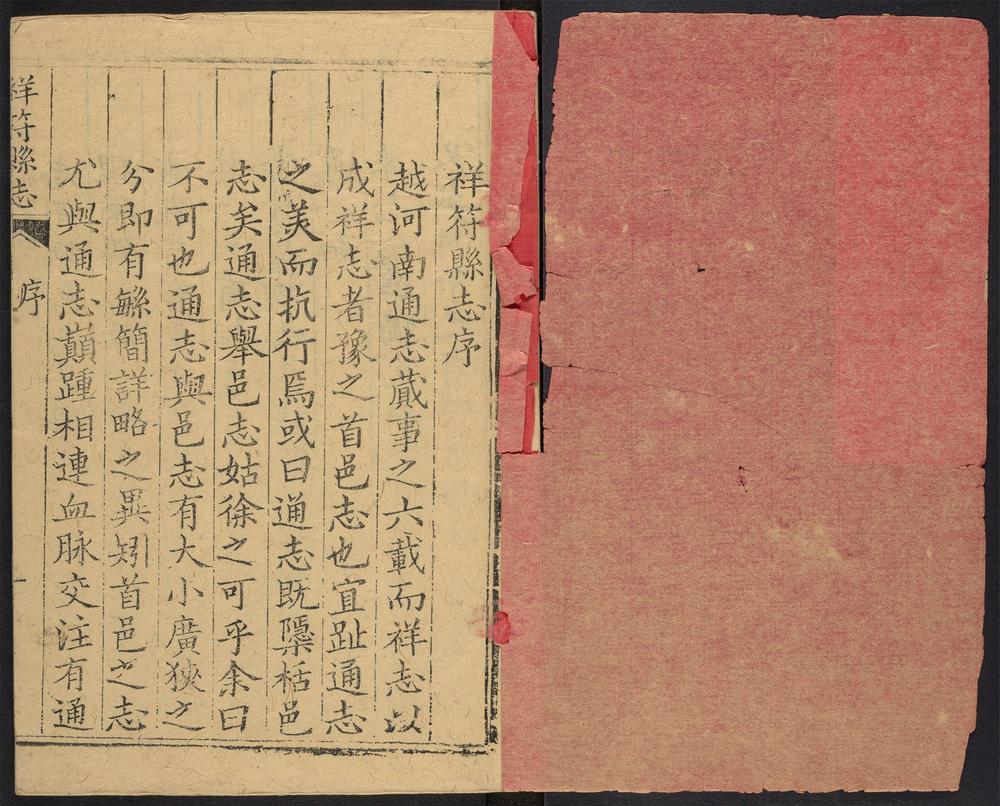 祥符縣志序
越河南通志蕆事之六載而祥志以
成祥志者豫之首邑志也宜趾通志
之美而抗行焉或曰通志既檃栝邑
志矣通志舉邑志姑徐之可乎余曰
不可也通志與邑志有大小廣狹之
分即有緐簡詳略之異矧首邑之志
尤與通志巔踵相連血脉交注有通
祥符縣志
序
一